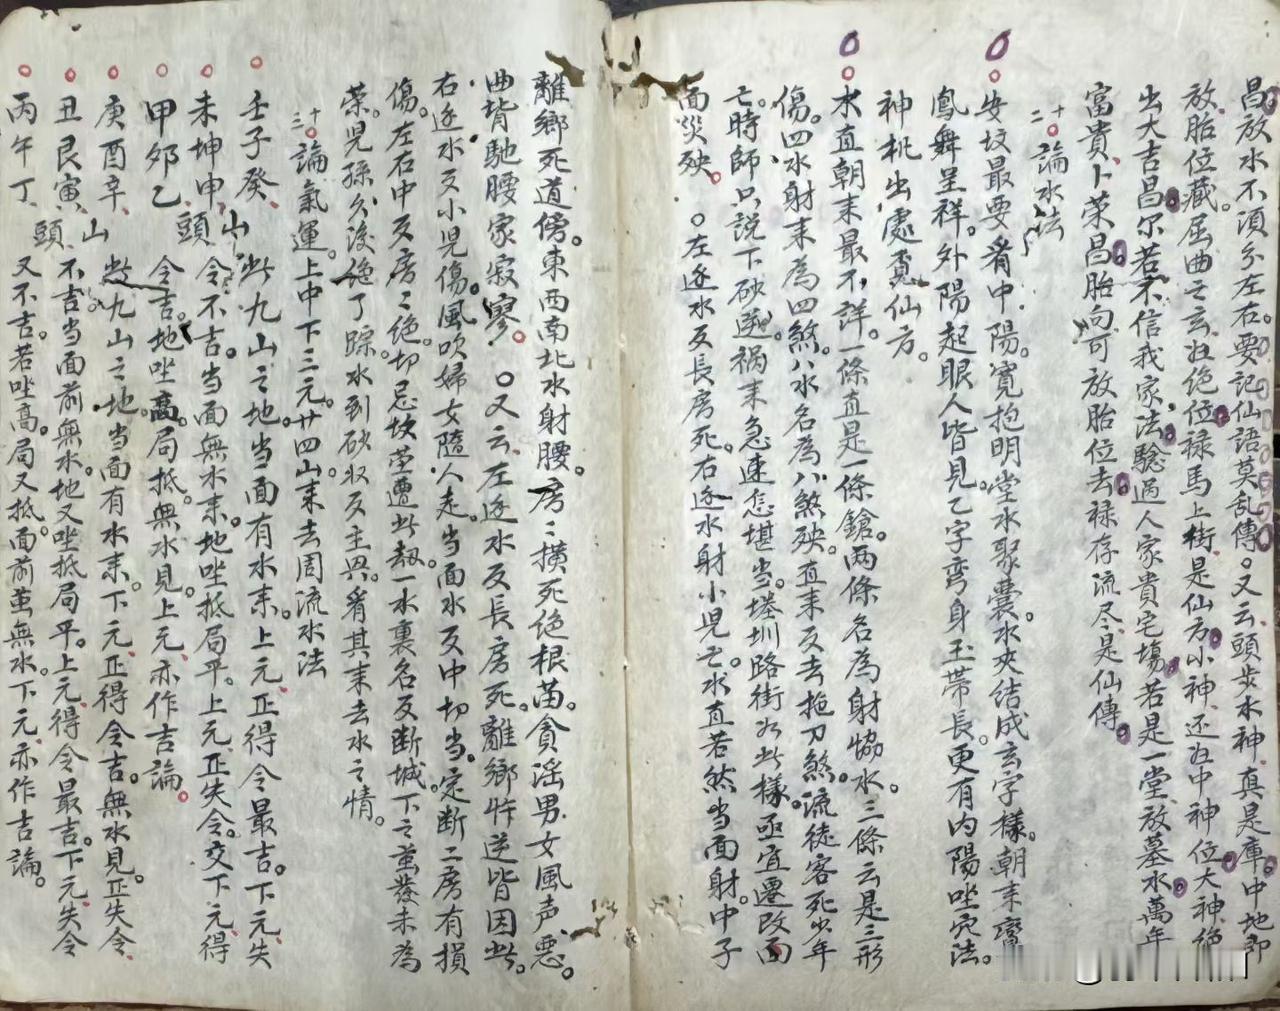 昌放水不須分左右。要記仙語莫乱傳。又云、頭步水神真是庫。中地郎
放胎位藏。屈曲之玄壮绝位。禄馬上街是仙方。小神还汪中神位。大神绝
出大吉昌。尔若不信我家法。騐過人家貴宅場。若是一堂放墓水。萬年
富貴卜荣昌。胎向可放胎位去。禄存流尽是仙傳。
二十論水法
安坟最要看中陽。寬抱明堂水聚囊。水夾结成玄字樣。朝来
鳳舞呈祥。外陽起眼人皆見。乙字弯身玉帶長。更有内陽唑穴法。
神机出處覔仙方。
水直朝来最不詳。一條直是一條鎗。两條名為射协水。三條云是三形
傷。四水射来為四煞。八水名為八煞殃。直来反去拖刀煞。流徒客死少年
亡。時師只說下砂逆。祸来急速怎堪当。塟圳路街如此樣。亟宜遷改面
面災殃。 左逐水反長房死。右逐水射小児亡。水直若然当面射。中子
離鄉死道傍。東西南北水射腰。房〻横死绝根苗。貪淫男女風声惡。
曲背馳腰家寂寥。 又云、左逐水反長房死。離鄉忤逆皆因此。
右逐水反小児傷。風吹婦女隨人走。当面水反中切当。定断二房有損
傷。左右中反房〻绝。切忌坟茔遭此劫。一水裏名反断城。下之茧發未為
荣。児孫久後绝了踪。水到砂収反主兴。看其来去水之情。
三十論氣運。上中下三元。廿四山来去周流水法
壬子癸、山此九山之地。当面有水来。上元正得令最吉。下元失
未坤申、頭令不吉。当面無水来。地唑抵局平。上元正失令。交下元得
甲夘乙 令吉。地坐高局抵。無水見。上元亦作吉論。
庚酉辛、山此九山之地。当面有水来。下元正得令吉。無水見。正失令
丑艮寅、頭不吉当面前無水。地又唑抵局平。上元得令最吉。下元失令
丙午丁、 又不吉。若唑高。局又抵。面前茧無水。下元亦作吉論。